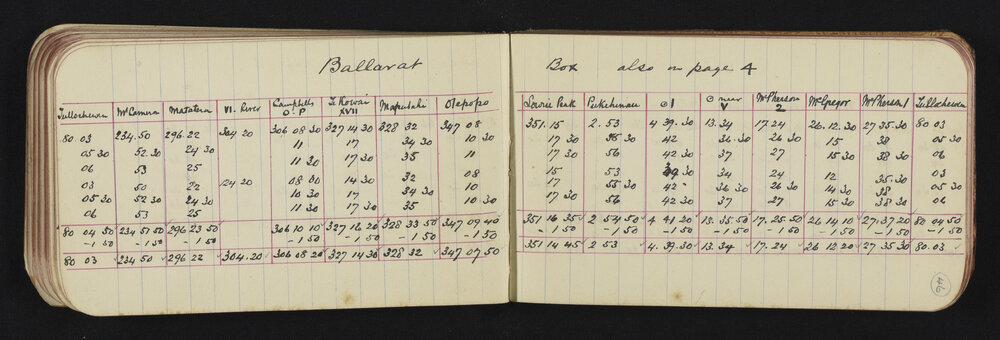 Ballarat Box also on page 4
Tullochewen McCamera Matatera VI. River Campbells O.P Te Kowai XVII Maputahi Otepopo Lowrie Park Pukehinau ⊙ I ⊙ near V McPherson 2 McGregor McPherson 1 Tullochewen
80 03 234.50 296 22 304 20 306 08 30 327 14 30 328 32 347 08 351.15 2.53 4 39.30 13.34 17.24 26.12.30 27 35.30 80 03
05 30 52.30 24 30 11 17 34 30 10 30 17 30 55 30 42 36.30 26 30 15 38 05 30
06 53 25 11 30 17 30 35 11 17 30 56 42 30 37 27 15 30 38 30 06
03 50 22 124 20 08 00 14 30 32 08 15 53 39 30 34 24 12 35.30 03
05 30 52 30 24 30 10 30 17 34 30 10 17 55 30 42 36 30 26 30 14 30 38 05 30
06 53 25 11 30 17 30 35 10 30 17 30 56 42 30 37 27 15 30 38 30 06
80 04 50 234 51 50 296 23 50 306 10 10 327 16 20 328 33 50 347 09 40 351 16 35 2 54 50 4 41 20 13.35 50 17.25 50 26 14 10 27.37 20 80 04 50
-1 50 -1 50 -1 50 -1 50 -1 50 -1 50 -1 50 -1 50 -1 50 -1 50 -1 50 -1 50 -1 50 -1 50 -1 50
80 03 234 50 296 22 304.20 306 08 20 327 14 30 328 32 347 07 50 351 14 45 2 53 4.39.30 13.34 17.24 26 12 20 27 35 30 80.03